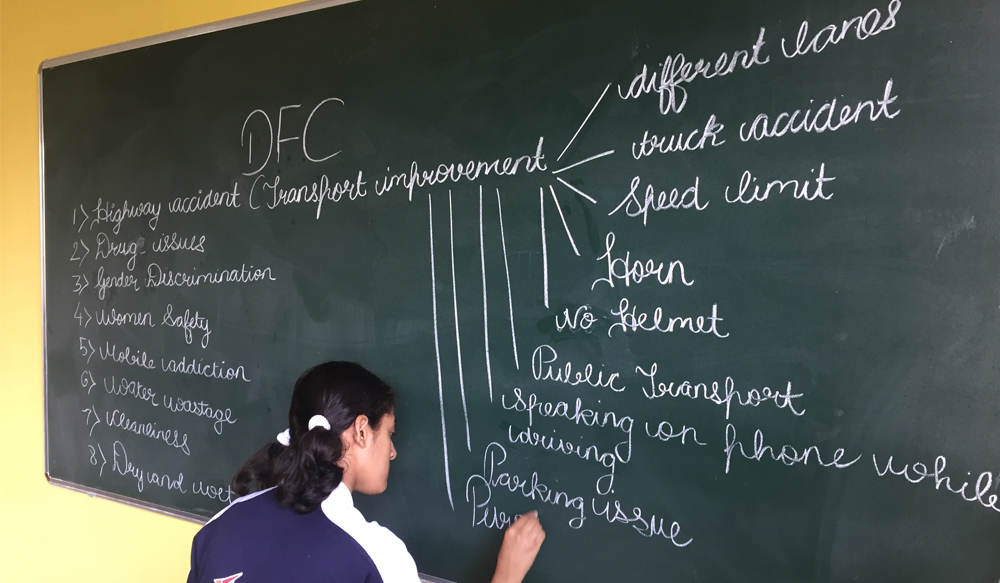 DFC
1) Highway accident (Transport improvement
2) Drug issues
3) Gender Discrimination
4) Women Safety
5) Mobile addiction
6) Water wastage
7) Cleanliness
8) Dry and wet
different lanes
truck accident
Speed limit
Horn
No Helmet
Public Transport
Speaking on phone while
driving
Parking issue